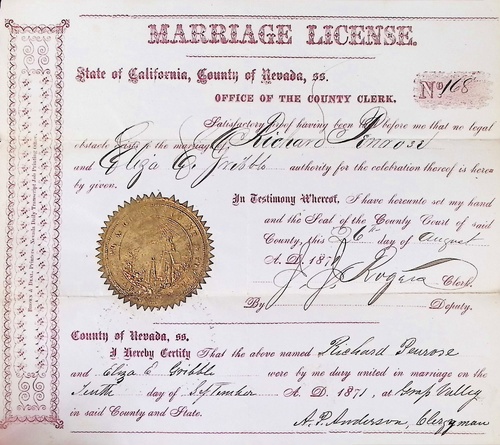 MARRIAGE LICENSE.
State of California, County of Nevada, ss.
No 168
OFFICE OF THE COUNTY CLERK.
Satisfactory proof having been before me that no legal
obstacle exists to the marriage of Richard Penrose
and Eliza E. Gribble authority for the celebration thereof is hereby
by given.
In Testimony Whereof, I have hereunto set my hand
and the Seal of the County Court of said
County, this 26th day of August
A. D. 1871
J. J. Rogers Clerk.
By Deputy.
County of Nevada, ss.
I Hereby Certify That the above named Richard Penrose
and Eliza E. Gribble were by me duly united in marriage on the
Tenth day of September A. D. 1871, at Grass Valley
in said County and State.
A. P. Anderson, Clergyman